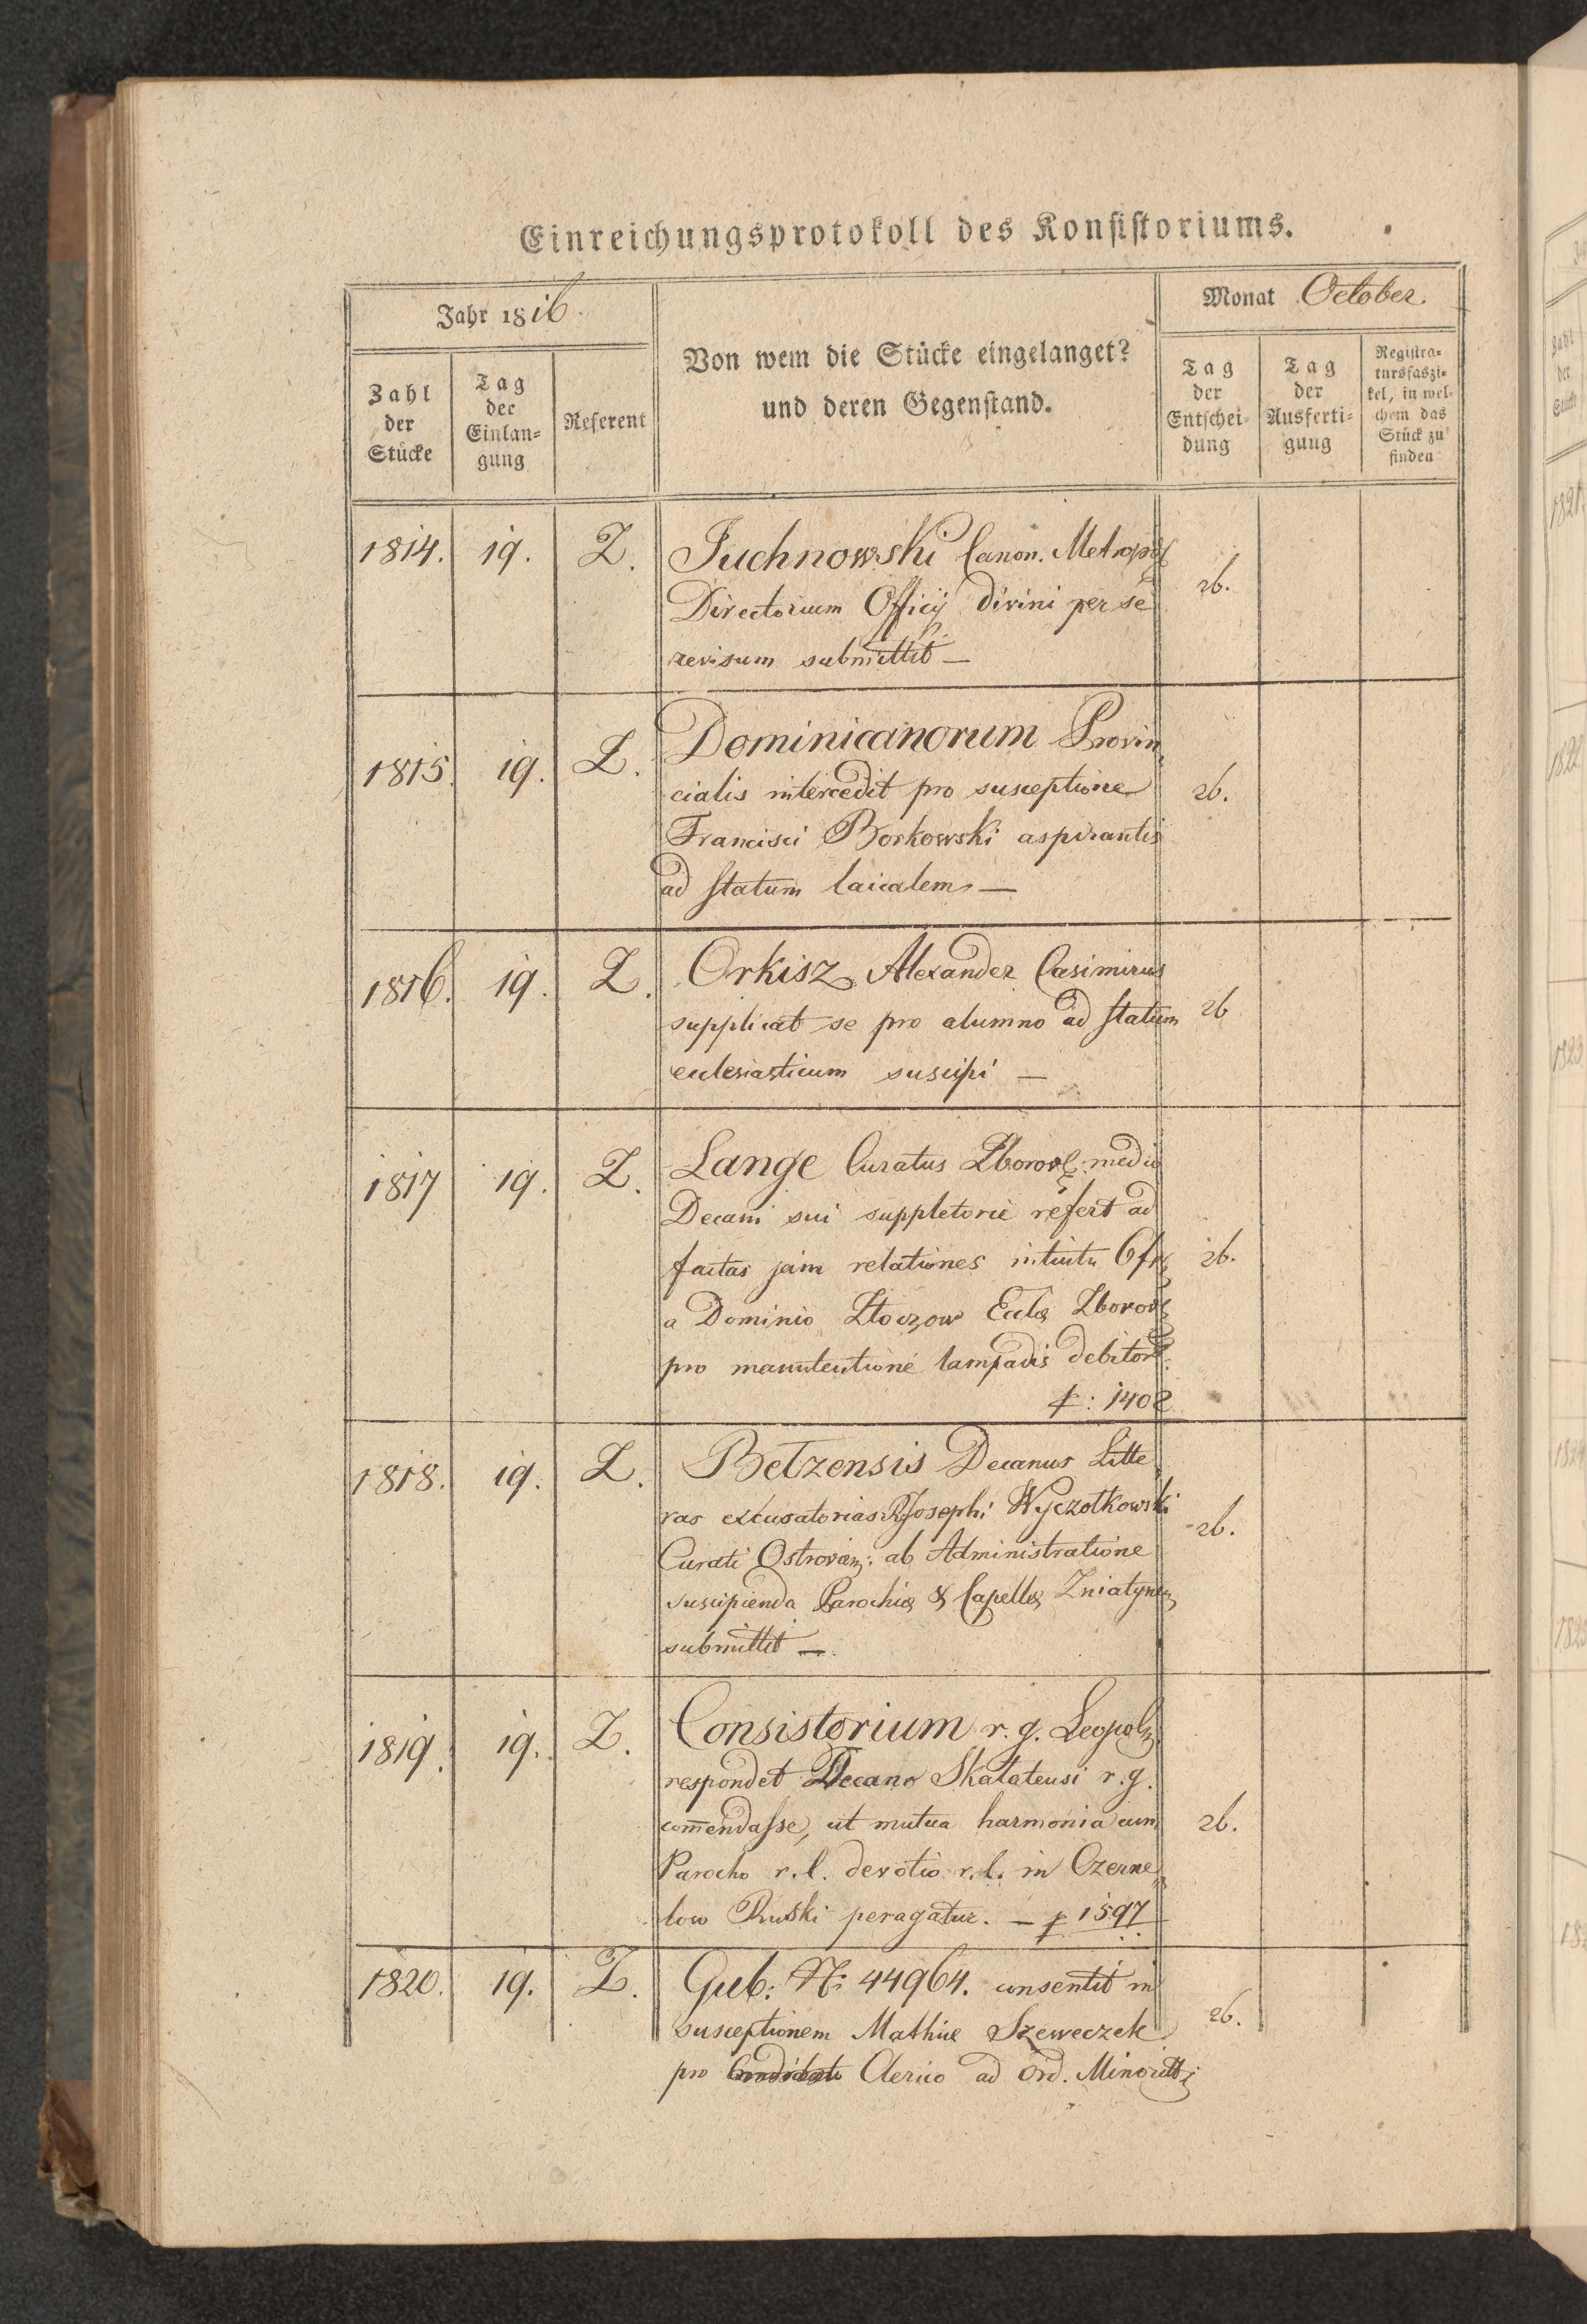 Einreichungsprotokoll des Konsistoriums.
Jahr 1816.
Monat October.
Zahl der Stücke
Tag der Einlan=gung
Referent
Von wem die Stücke eingelanget?
und deren Gegenstand.
Tag der Entschei=dung
Tag der Ausferti=gung
Registra=tursfaszi=kel, in wel=chem das Stück zu finden
1814. 19. Z. Juchnowski Canon. Metropol
Directorium Officij divini per se 26.
revisum submittit —
1815. 19. Z. Dominicanorum Provin
cialis intercedit pro susceptione 26.
Francisci Borkowski aspirantis
ad statum laicalem —
1816. 19. Z. Orkisz Alexander Casimirus
supplicat se pro alumno ad statum 26
ecclesiasticum suscipi —
1817 19. Z. Lange Curatus Zborov: medio
Decani sui suppletorie refert ad
factas jam relationes intuitu 6 fr 26.
a Dominio Złoczow Eccla Zborov
pro manutentione lampadis debitor.
f: 1402
1818. 19. Z. Betzensis Decanus Litte
ras excusatorias R Josephi Wyczołkowski 26.
Curati Ostrovien: ab Administratione
suscipienda Parochiæ & Capellæ Zniatynen
submittit —
1819. 19. Z. Consistorium r. g. Leopol.
respondet Decano Skalatensi r. g.
com̄endasse, ut mutua harmonia cum 26.
Parocho r. l. devotio r. l. in Czerne
low Ruski peragatur. — f 1597
1820. 19. Z. Gub: N: 44964. consentit in
susceptionem Mathiæ Szeweczek 26.
pro Candidato Clerico ad Ord. Minoritt